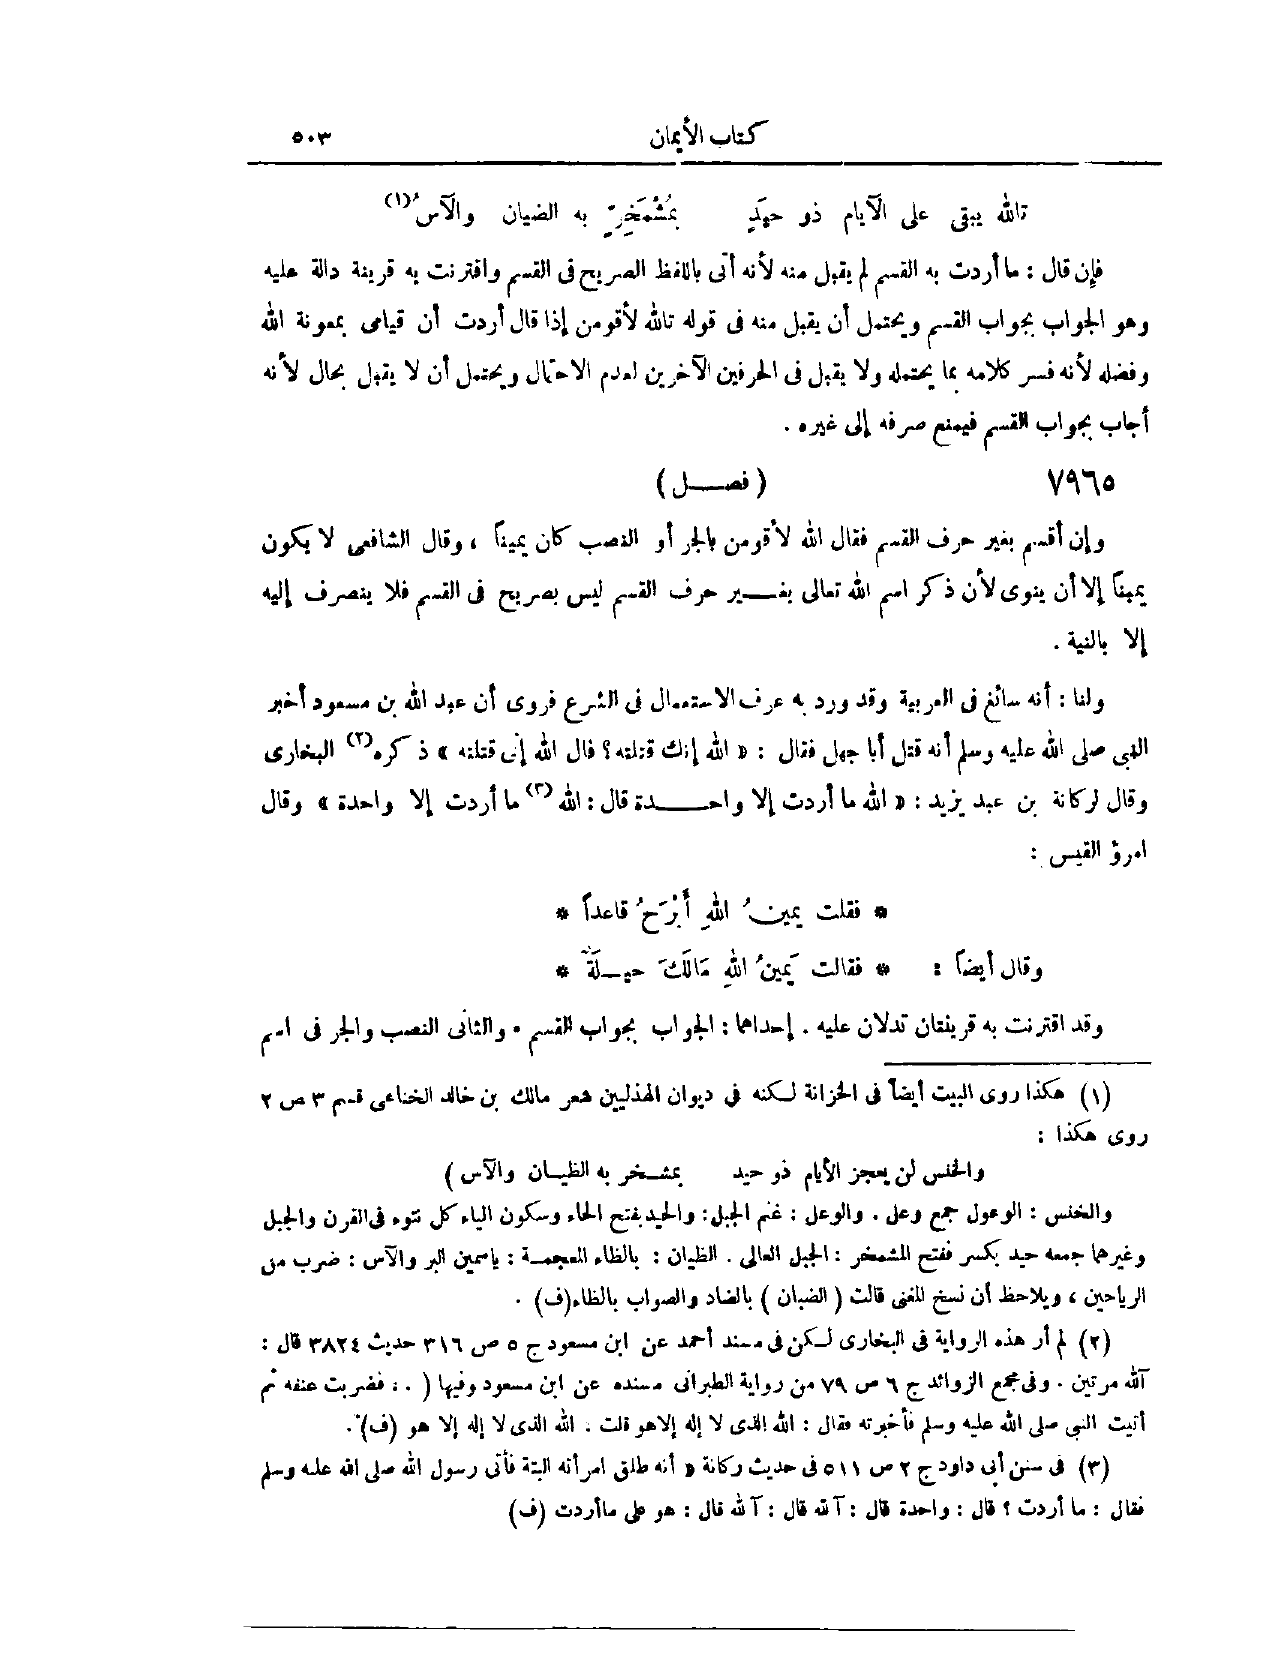 كتاب الأيمان ٥٠٣
تالله يبقى على الأيام ذو حيَدٍ بمُشْمَخِرٍّ به الضيان والآسُ(١)
فإن قال : ما أردت به القسم لم يقبل منه لأنه أتى باللفظ الصريح فى القسم واقترنت به قرينة دالة عليه
وهو الجواب بجواب القسم ويحتمل أن يقبل منه فى قوله تالله لأقومن إذا قال أردت أن قيامى بمعونة الله
وفضله لأنه فسر كلامه بما يحتمله ولا يقبل فى الحرفين الآخرين لعدم الاحتمال ويحتمل أن لا يقبل بحال لأنه
أجاب بجواب القسم فيمنع صرفه إلى غيره .
٧٩٦٥ ( فصــل )
وإن أقسم بغير حرف القسم فقال الله لأقومن بالجر أو النصب كان يميناً ، وقال الشافعى لا يكون
يميناً إلا أن ينوى لأن ذكر اسم الله تعالى بغــير حرف القسم ليس بصريح فى القسم فلا ينصرف إليه
إلا بالنية .
ولنا : أنه سائغ فى العربية وقد ورد به عرف الاستعمال فى الشرع فروى أن عبد الله بن مسعود أخبر
النبى صلى الله عليه وسلم أنه قتل أبا جهل فقال : « الله إنك قتلته ؟ قال الله إنى قتلته » ذكره(٢) البخارى
وقال لركانة بن عبد يزيد : « الله ما أردت إلا واحــدة قال : الله(٣) ما أردت إلا واحدة » وقال
امرؤ القيس :
* فقلت يمينُ اللهِ أَبْرَحُ قاعداً *
وقال أيضاً : * فقالت يَمينُ اللهِ مَالَكَ حيــلَةٌ *
وقد اقترنت به قرينتان تدلان عليه . إحداهما : الجواب بجواب القسم . والثانى النصب والجر فى اسم
(١) هكذا روى البيت أيضاً فى الخزانة لـكنه فى ديوان الهذليين شعر مالك بن خالد الخناعى قسم ٣ ص ٢
روى هكذا :
والخنس لن يعجز الأيام ذو حيد بمشــخر به الظيــان والآس )
والخنس : الوعول جمع وعل . والوعل : غنم الجبل : والحيد بفتح الحاء وسكون الياء كل نتوء فى القرن والجبل
وغيرهما جمعه حيد بكسر ففتح المشمخر : الجبل العالى . الظيان : بالظاء المعجمــة : ياسمين البر والآس : ضرب من
الرياحين ، ويلاحظ أن نسخ المغنى قالت ( الضيان ) بالضاد والصواب بالظاء (ف) .
(٢) لم أر هذه الرواية فى البخارى لـكن فى مسند أحمد عن ابن مسعود ج ٥ ص ٣١٦ حديث ٣٨٢٤ قال :
آلله مرتين . وفى مجمع الزوائد ج ٦ ص ٧٩ من رواية الطبرانى مسنده عن ابن مسعود وفيها ( . . فضربت عنقه ثم
أتيت النبى صلى الله عليه وسلم فأخبرته فقال : الله الذى لا إله إلا هو قلت . الله الذى لا إله إلا هو (ف) .
(٣) فى سنن أبى داود ج ٢ ص ٥١١ فى حديث ركانة « أنه طلق امرأته البتة فأتى رسول الله صلى الله عليه وسلم
فقال : ما أردت ؟ قال : واحدة قال : آلله قال : آلله قال : هو على ما أردت (ف)